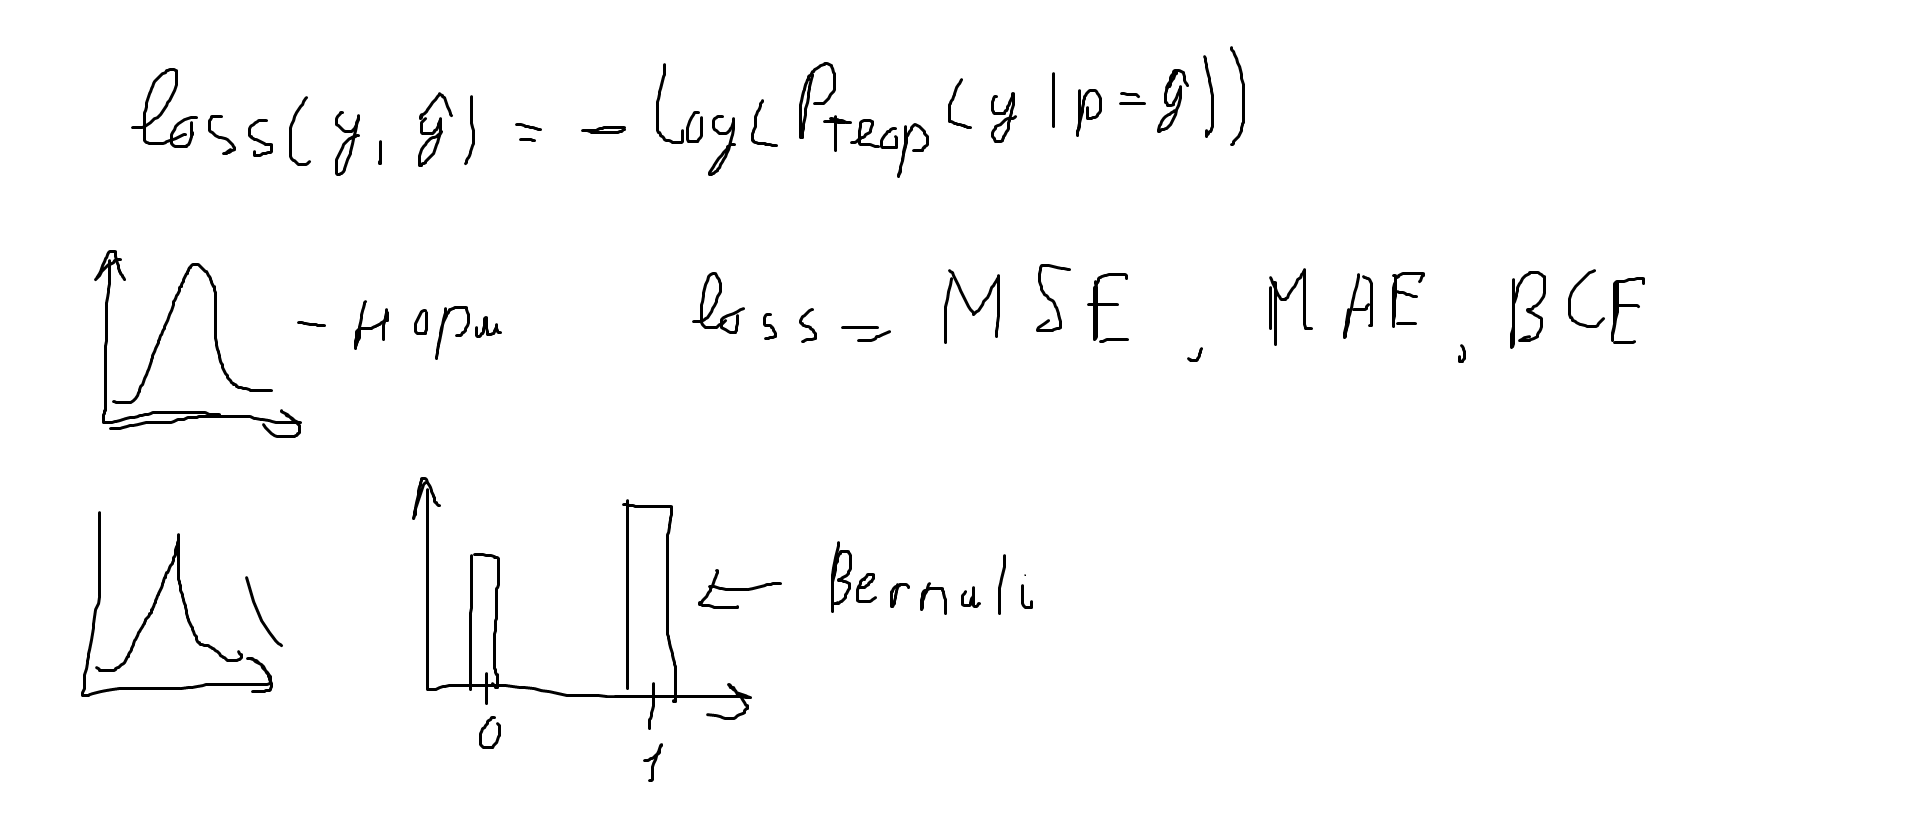 loss(y, ŷ) = - log(P теор (y | p = ŷ))
- норм
loss = MSE, MAE, BCE
Bernuli
0
1